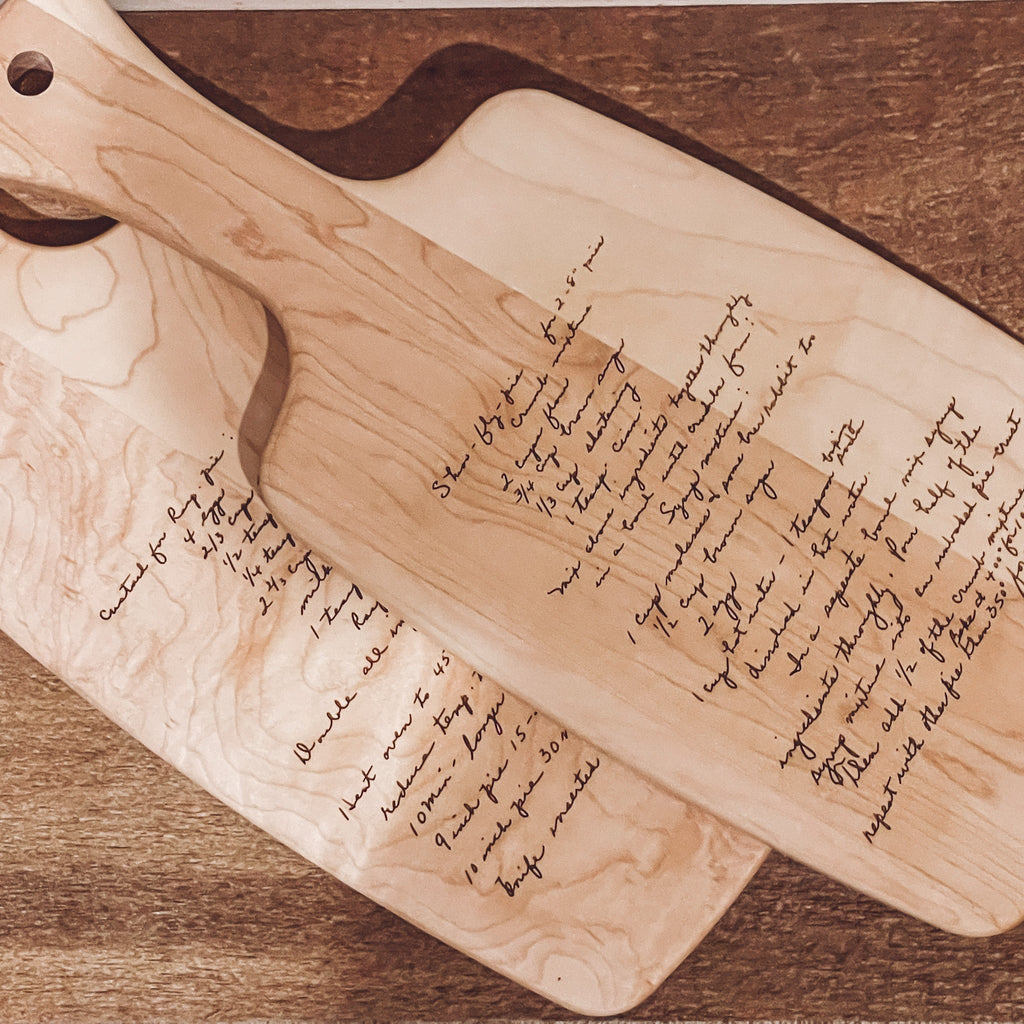 Shoo-fly-pie for 2-8" pies
Crumb mixture
2 cups flour
3/4 cup brown sugar
1/3 cup shortening
1 teasp. cinn.
mix above ingredients together thoroughly
in a bowl until crumbs form
Syrup mixture:
1 cup molasses & some hot to
1/2 cup brown sugar
2 eggs
1 cup hot water - 1 teaspoon baking soda
dissolved in hot water.
In a separate bowl mix syrup
ingredients thoroughly. Pour half of the
syrup mixture into an unbaked pie crust
Then add 1/2 of the crumb mixture
repeat with other pie Bake at 400° for
Then 350° for
Custard for Ray pie:
4 eggs
2/3 cup
1/2 teasp
1/4 teasp
2 2/3 cup
milk
1 teasp
Ray
Double all in
Heat oven to 45
reduce temp.
10 min. longer
9 inch pie 15-
10 inch pie 30 m
knife inserted